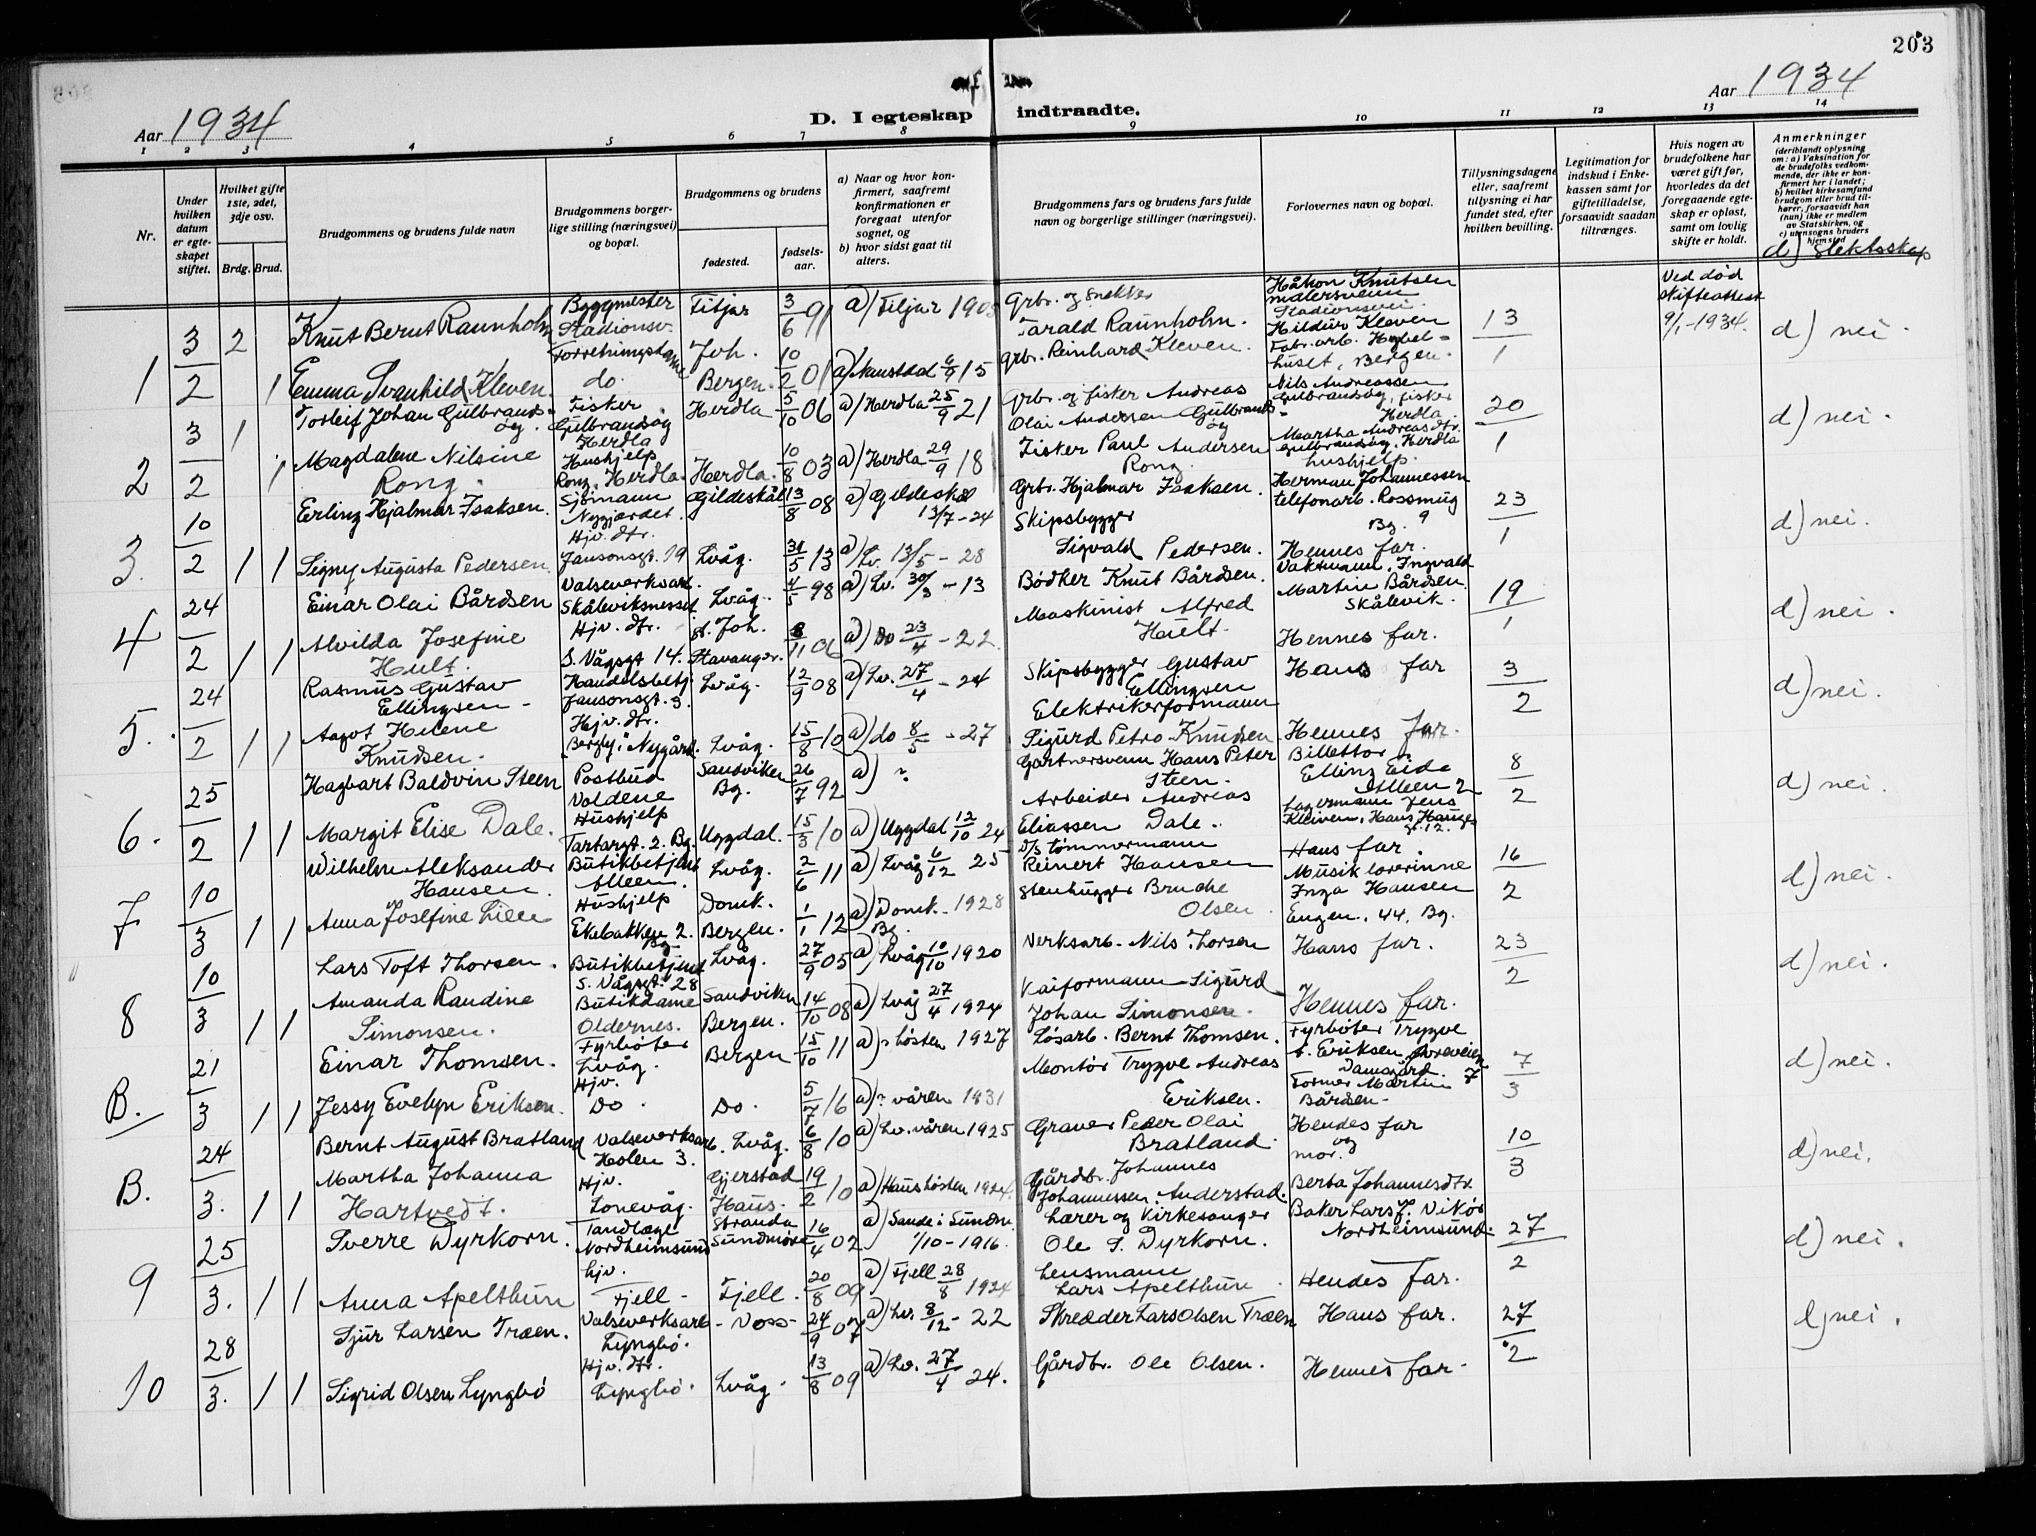 203
Aar 1934
D. I egteskap indtraadte.
Aar 1934
1 2 3 4 5 6 7 8 9 10 11 12 13 14
Nr.
Under hvilken datum er egteskapet stiftet.
Hvilket gifte 1ste, 2det, 3dje osv.
Brdg. Brud.
Brudgommens og brudens fulde navn
Brudgommens borgerlige stilling (næringsvei) og bopæl.
Brudgommens og brudens
fødested.
fødselsaar.
a) Naar og hvor konfirmert, saafremt konfirmationen er foregaat utenfor sognet, og
b) hvor sidst gaat til alters.
Brudgommens fars og brudens fars fulde navn og borgerlige stillinger (næringsvei).
Forlovernes navn og bopæl.
Tillysningsdagene eller, saafremt tillysning ei har fundet sted, efter hvilken bevilling.
Legitimation for indskud i Enkekassen samt for giftetilladelse, forsaavidt saadan tiltrænges.
Hvis nogen av brudefolkene har været gift før, hvorledes da det foregaaende egteskap er opløst, samt om lovlig skifte er holdt.
Anmerkninger
(deriblandt oplysning om: a) Vaksination for de brudefolks vedkommende, der ikke er konfirmert her i landet; b) hvilket kirkesamfund brudgom eller brud tilhører, forsaavidt han (hun) ikke er medlem av Statskirken, og c) utensogns bruders hjemsted
d) slektsskap
1 3/2 2 Knut Bernt Raunholm Byggmester Stadionsv. Fitjar 3/6 91 a) Fitjar 1905 Grbr. og snekker Tarald Raunholm. Håkon Knutsen malersvenn Stadionsvei 13/1 Ved død skifteattest 9/1-1934. d) nei.
1 Emma Svanhild Kleven Forretningsdame do. Joh. Bergen. 10/2 01 a) Naustdal 6/9 15 Grbr. Reinhard Kleven. Hildur Kleven Fabr. arb. Hybelhuset, Bergen.
2 3/2 1 Torleif Johan Gulbrandsøy. Fisker Gulbrandsøy Herdla Herdla 5/10 06 a) Herdla 25/9 21 Grbr. og fisker Andreas Olai Andersen Gulbrandsøy Nils Andreassen Gulbrandsøy, fisker Herdla 20/1 d) nei.
1 Magdalene Nilsine Rong. Hushjelp Rong, Herdla. Herdla. 10/8 03 a) Herdla 29/9 18 Fisker Paul Andersen Rong. Martha Andreasdtr. Gulbrandsøy, Herdla hushjelp.
3. 10/2 1 Erling Hjalmar Isaksen. Sjømann Nygjerdet. Gildeskål 13/8 08 a) Gildeskål 13/7-24 Grbr. Hjalmar Isaksen. Herman Johannessen telefonarb. Rossmug 9 Bg. 23/1 d) nei.
1 Signy Augusta Pedersen. Hjv. dtr. Jansonsgt. 19 Lvåg. 31/5 13 a) Lv. 13/5-28 Skipsbygger Sigvald Pedersen. Hennes far.
4 24/2 1 Einar Olai Bårdsen Valseverksarb. Skåleviksnesset Lvåg. 4/5 98 a) Lv. 30/3-13 Bødker Knut Bårdsen. Vaktmann, Ingvald Martin Bårdsen Skålevik. 19/1 d) nei.
1 Alvilda Josefine Hult. Hjv. dtr. S. Vågsgt 14. St. Joh. Stavanger. 8/11 06 a) Do 23/4-22. Maskinist Alfred Hult. Hennes far.
5. 24/2 1 Rasmus Gustav Ellingsen - Handelsbetj. Jansonsgt. 3. Lvåg. 12/9 08 a) Lv. 27/4-24 Skipsbygger Gustav Ellingsen Hans far 3/2 d) nei.
1 Aagot Helene Knudsen. Hjv. dtr. Bergly i Nygård. Lvåg. 15/8 10 a) do 8/5-27 Elektrikerformann Sigurd Petro Knudsen Hennes far.
6. 25/2 1 Hagbart Baldvin Steen Postbud Voldene Sandviken Bg. 26/7 92 a) ? Gartnersvenn Hans Peter Steen. Billettør Elling Eide Alleen 2 8/2 d) nei.
1 Margit Elise Dale. Hushjelp Tartargt. 2. Bg. Uggdal. 15/3 10 a) Uggdal 12/10 24 Arbeider Andreas Eliassen Dale. Lagermann Jens Kleiven, Hans Hauges gt. 12.
7 10/3 1 Wilhelm Aleksander Hansen. Butikbetjent Alleen. Lvåg. 2/6 11 a) Lvåg 6/12 25 D/s tømmermann Reinert Hansen Hans far. 16/2 d) nei.
1 Anna Josefine Lien Hushjelp Ekebakken 2. Bg Domk. Bergen. 1/1 12 a) Domk. 1928 Bg. Stenhugger Bruche Olsen. Musiklærerinne Inga Hansen Engen. 44. Bg.
8 10/3 1 Lars Toft Thorsen. Butikbetjent S. Vågsgt. 28 Lvåg. 27/9 05 a) Lvåg 10/10 1920 Verksarb. Nils Thorsen Hans far. 23/2 d) nei.
1 Amanda Randine Simonsen. Butikdame Oldernes. Sandviken Bergen. 14/10 08 a) Lvåg 27/4 1924 Kaiformann Sigurd Johan Simonsen. Hennes far.
B. 21/3 1 Einar Thomsen. Fyrbøter Lvåg. Bergen 15/10 11 a) ? høsten 1927 Løsarb. Bernt Thomsen. Fyrbøter Trygve A. Eriksen, Øvreveien 7 Damsgård. 7/3 d) nei.
1 Jessy Evelyn Eriksen. Hjv. Do. Do. 5/7 16 a) ? våren 1931 Montør Trygve Andreas Eriksen. Former Martin Bårdsen-
B. 24/3. 1 Bernt August Bratland Valseverksarb. Holen 3. Lvåg. 6/8 10 a) Lv. våren 1925 Graver Peder Olai Bratland. Hendes far og mor. 10/3 d) nei.
1 Martha Johanna Hartvedt. Hjv. Lonevåg. Gjerstad Haus. 19/2 10 a) Haus høsten 1924. Gårdbr. Johannes Johannessen Anderstad. Berta Johannesdtr
9 25/3. 1 Sverre Dyrkorn. Tandlæge Nordheimsund Stranda Sundmøre 16/4 02 a) Sande i Sundm. 1/10-1916. Lærer og kirkesanger Ole S. Dyrkorn. Baker Lars J. Vikør Nordheimsund. 27/2 d) nei.
1 Anna Apelthun hjv. Fjell - Fjell. 20/8 09 a) Fjell 28/8 1924 Lensmann Lars Apelthun. Hendes far.
10 28/3. 1 Sjur Larsen Træen. Valseverksarb Lyngbø. - Voss - 24/9 07 a) Lv. 8/12-22 Skredder Lars Olsen Træen Hans far. 27/2 d) nei.
1 Sigrid Olsen Lyngbø Hjv. dtr. Lyngbø. Lvåg. 13/8 09 a) Lv. 27/4 24. Gårdbr. Ole Olsen. Hennes far.